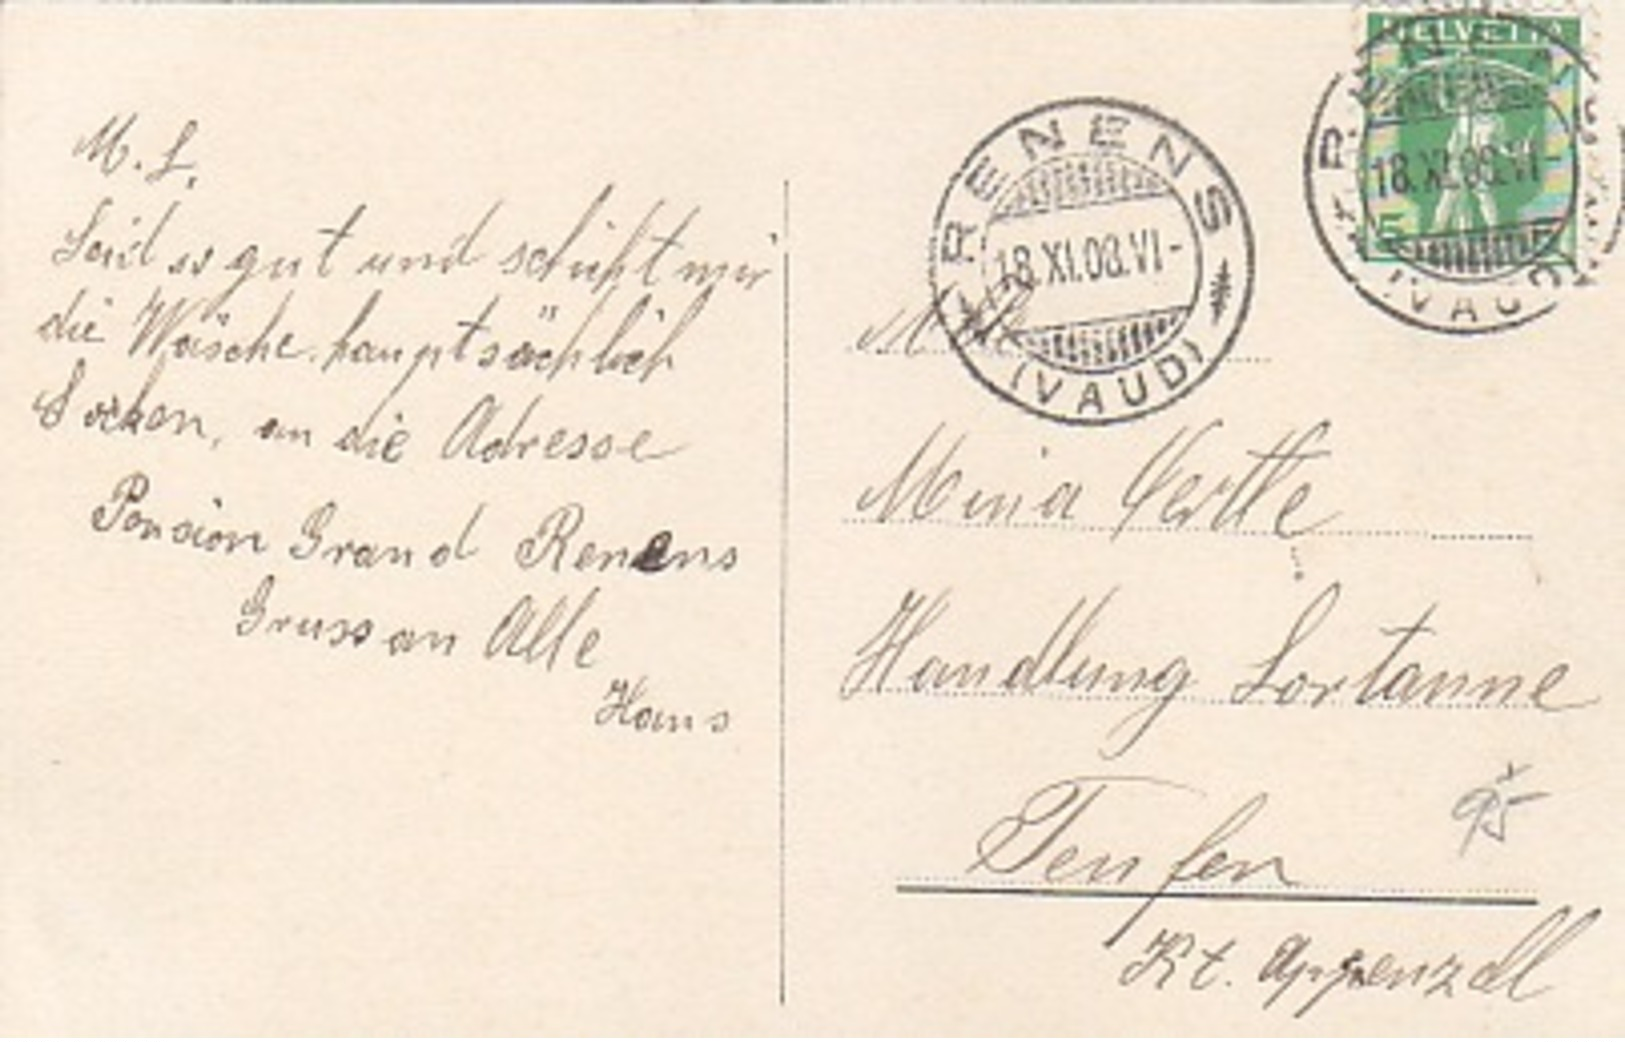 M. L.
Seid so gut und schickt mir
die Wäsche hauptsächlich
Socken, an die Adresse
Pension Grand Renens
Gruss an Alle
Hans
HELVETIA
5
RENENS
18.XI.08.VI-
(VAUD)
RENENS
18.XI.08.VI-
(VAUD)
M
Mina Oertle
Handlung Lortanne
Teufen
Kt. Appenzell